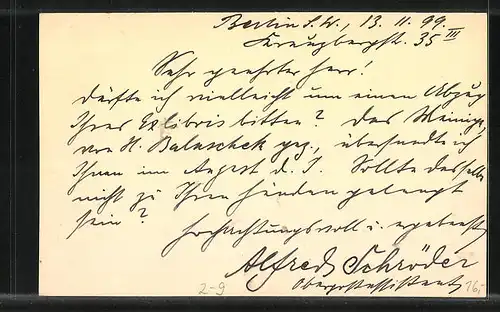 Berlin S.W., 13. 11. 99.
Kreuzbergst. 35 III
Sehr geehrter Herr!
Dürfte ich vielleicht um einen Abzug
Ihres Exlibris bitten? Das Meinige,
von H. Baluschek gez., übersandte ich
Ihnen im August d. J. Sollte dasselbe
nicht zu Ihren Händen gelangt
sein?
Hochachtungsvoll u. ergebenst
Alfred Schröder
Oberpostassistent
2-9
16,-